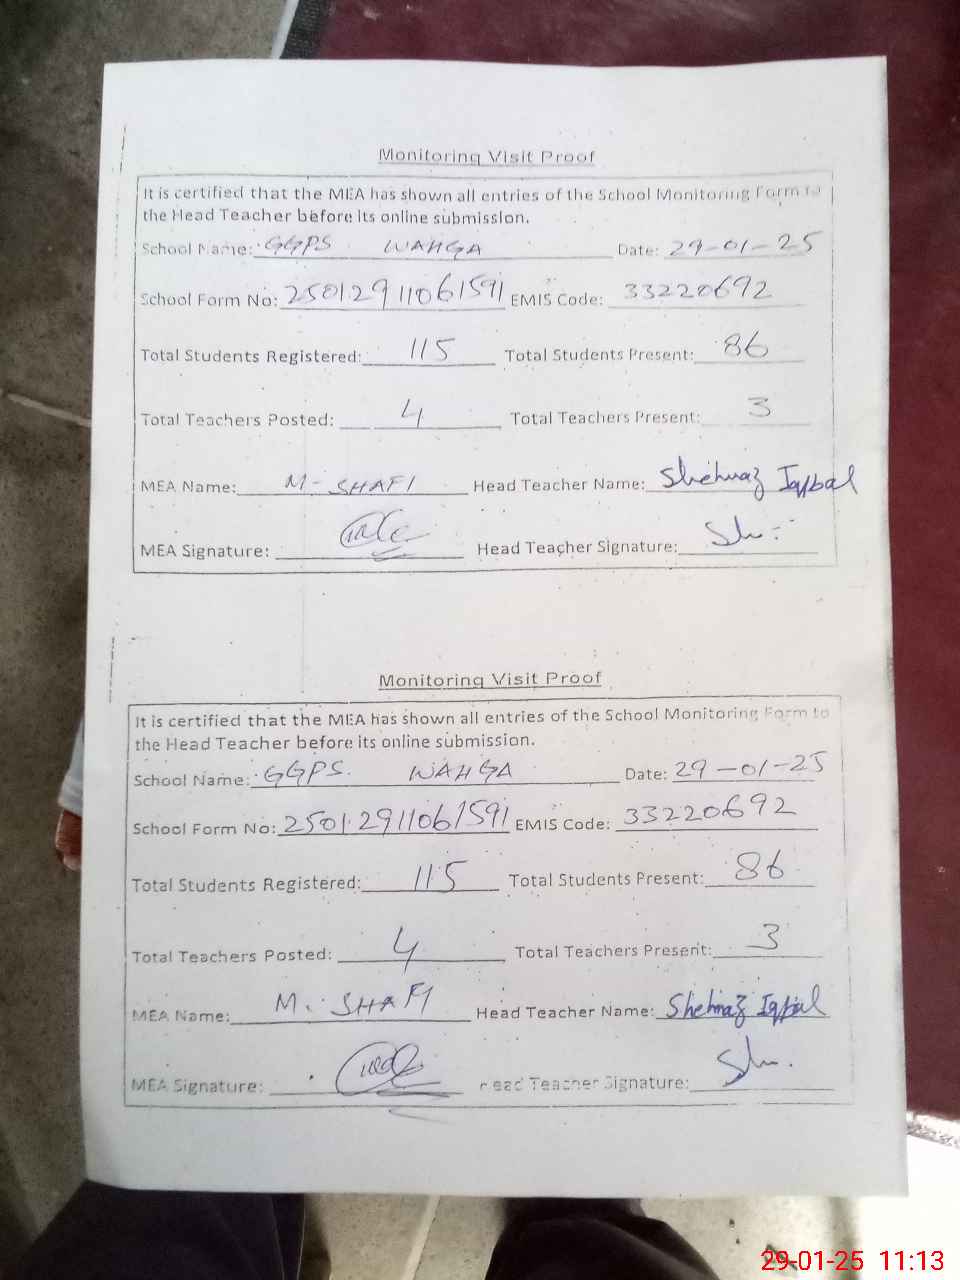 Monitoring Visit Proof
It is certified that the MEA has shown all entries of the School Monitoring Form to
the Head Teacher before its online submission.
School Name: GGPS WAHGA Date: 29-01-25
School Form No: 25012911061591 EMIS Code: 33220692
Total Students Registered: 115 Total Students Present: 86
Total Teachers Posted: 4 Total Teachers Present: 3
MEA Name: M-SHAFI Head Teacher Name: Shehnaz Iqbal
MEA Signature: Head Teacher Signature:
Monitoring Visit Proof
It is certified that the MEA has shown all entries of the School Monitoring Form to
the Head Teacher before its online submission.
School Name: GGPS. WAHGA Date: 29-01-25
School Form No: 25012911061591 EMIS Code: 33220692
Total Students Registered: 115 Total Students Present: 86
Total Teachers Posted: 4 Total Teachers Present: 3
MEA Name: M. SHAFI Head Teacher Name: Shehnaz Iqbal
MEA Signature: Head Teacher Signature:
29-01-25 11:13